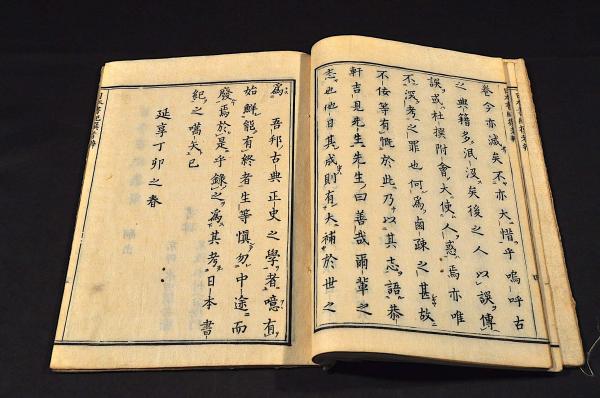 卷今亦滅矣不亦大惜乎嗚呼古
之典籍多泯没矣後之人以誤傳
誤或杜撰附會大使人惑焉亦唯
不深考之罪也何爲鹵疎之甚故
不佞等有慨於此乃以其志語恭
軒吉見先生先生曰善哉爾輩之
志也他日其成則有大補於世之
爲 吾邦古典正史之學者噫有
始鮮能有終者生等愼勿中途而
廢焉於是乎録之爲其考日本書
紀之嚆矢已
延享丁卯之春